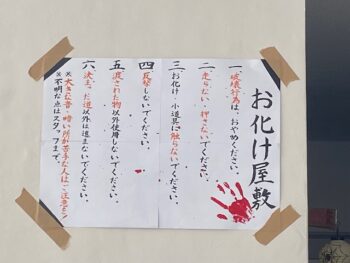 お化け屋敷
一、破壊行為は、おやめください。
二、走らない・押さないでください。
三、お化け、小道具に触らないでください。
四、反撃しないでください。
五、渡された物以外使用しないでください。
六、決まった道以外は進まないでください。
※大きな音・暗い所が苦手な人はご注意を!
※不明な点はスタッフまで。